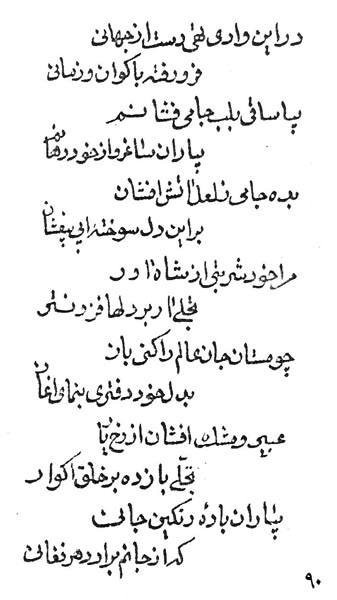 در این وادی تهی دست از جهانی
فرو رفته با کوان و زمانی
بیا ساقی بلب جامی فشانم
بیاران ساغر و از خود رهانم
بده جامی ز لعل آتش افشان
بر این دل سوخته آبی بیفشان
مرا خود شربتی از مشاه آور
تجلی آر بر دلها فزونتر
چو مستان جان عالم را کنی باز
بدل خود دفتری بنمای آغاز
عبیر و مشک افشان از رخ یار
تجلی باز ده بر خلق اکوار
بیاران باده رنگین جانی
که از جانم برارد هر فغانی
۹۰